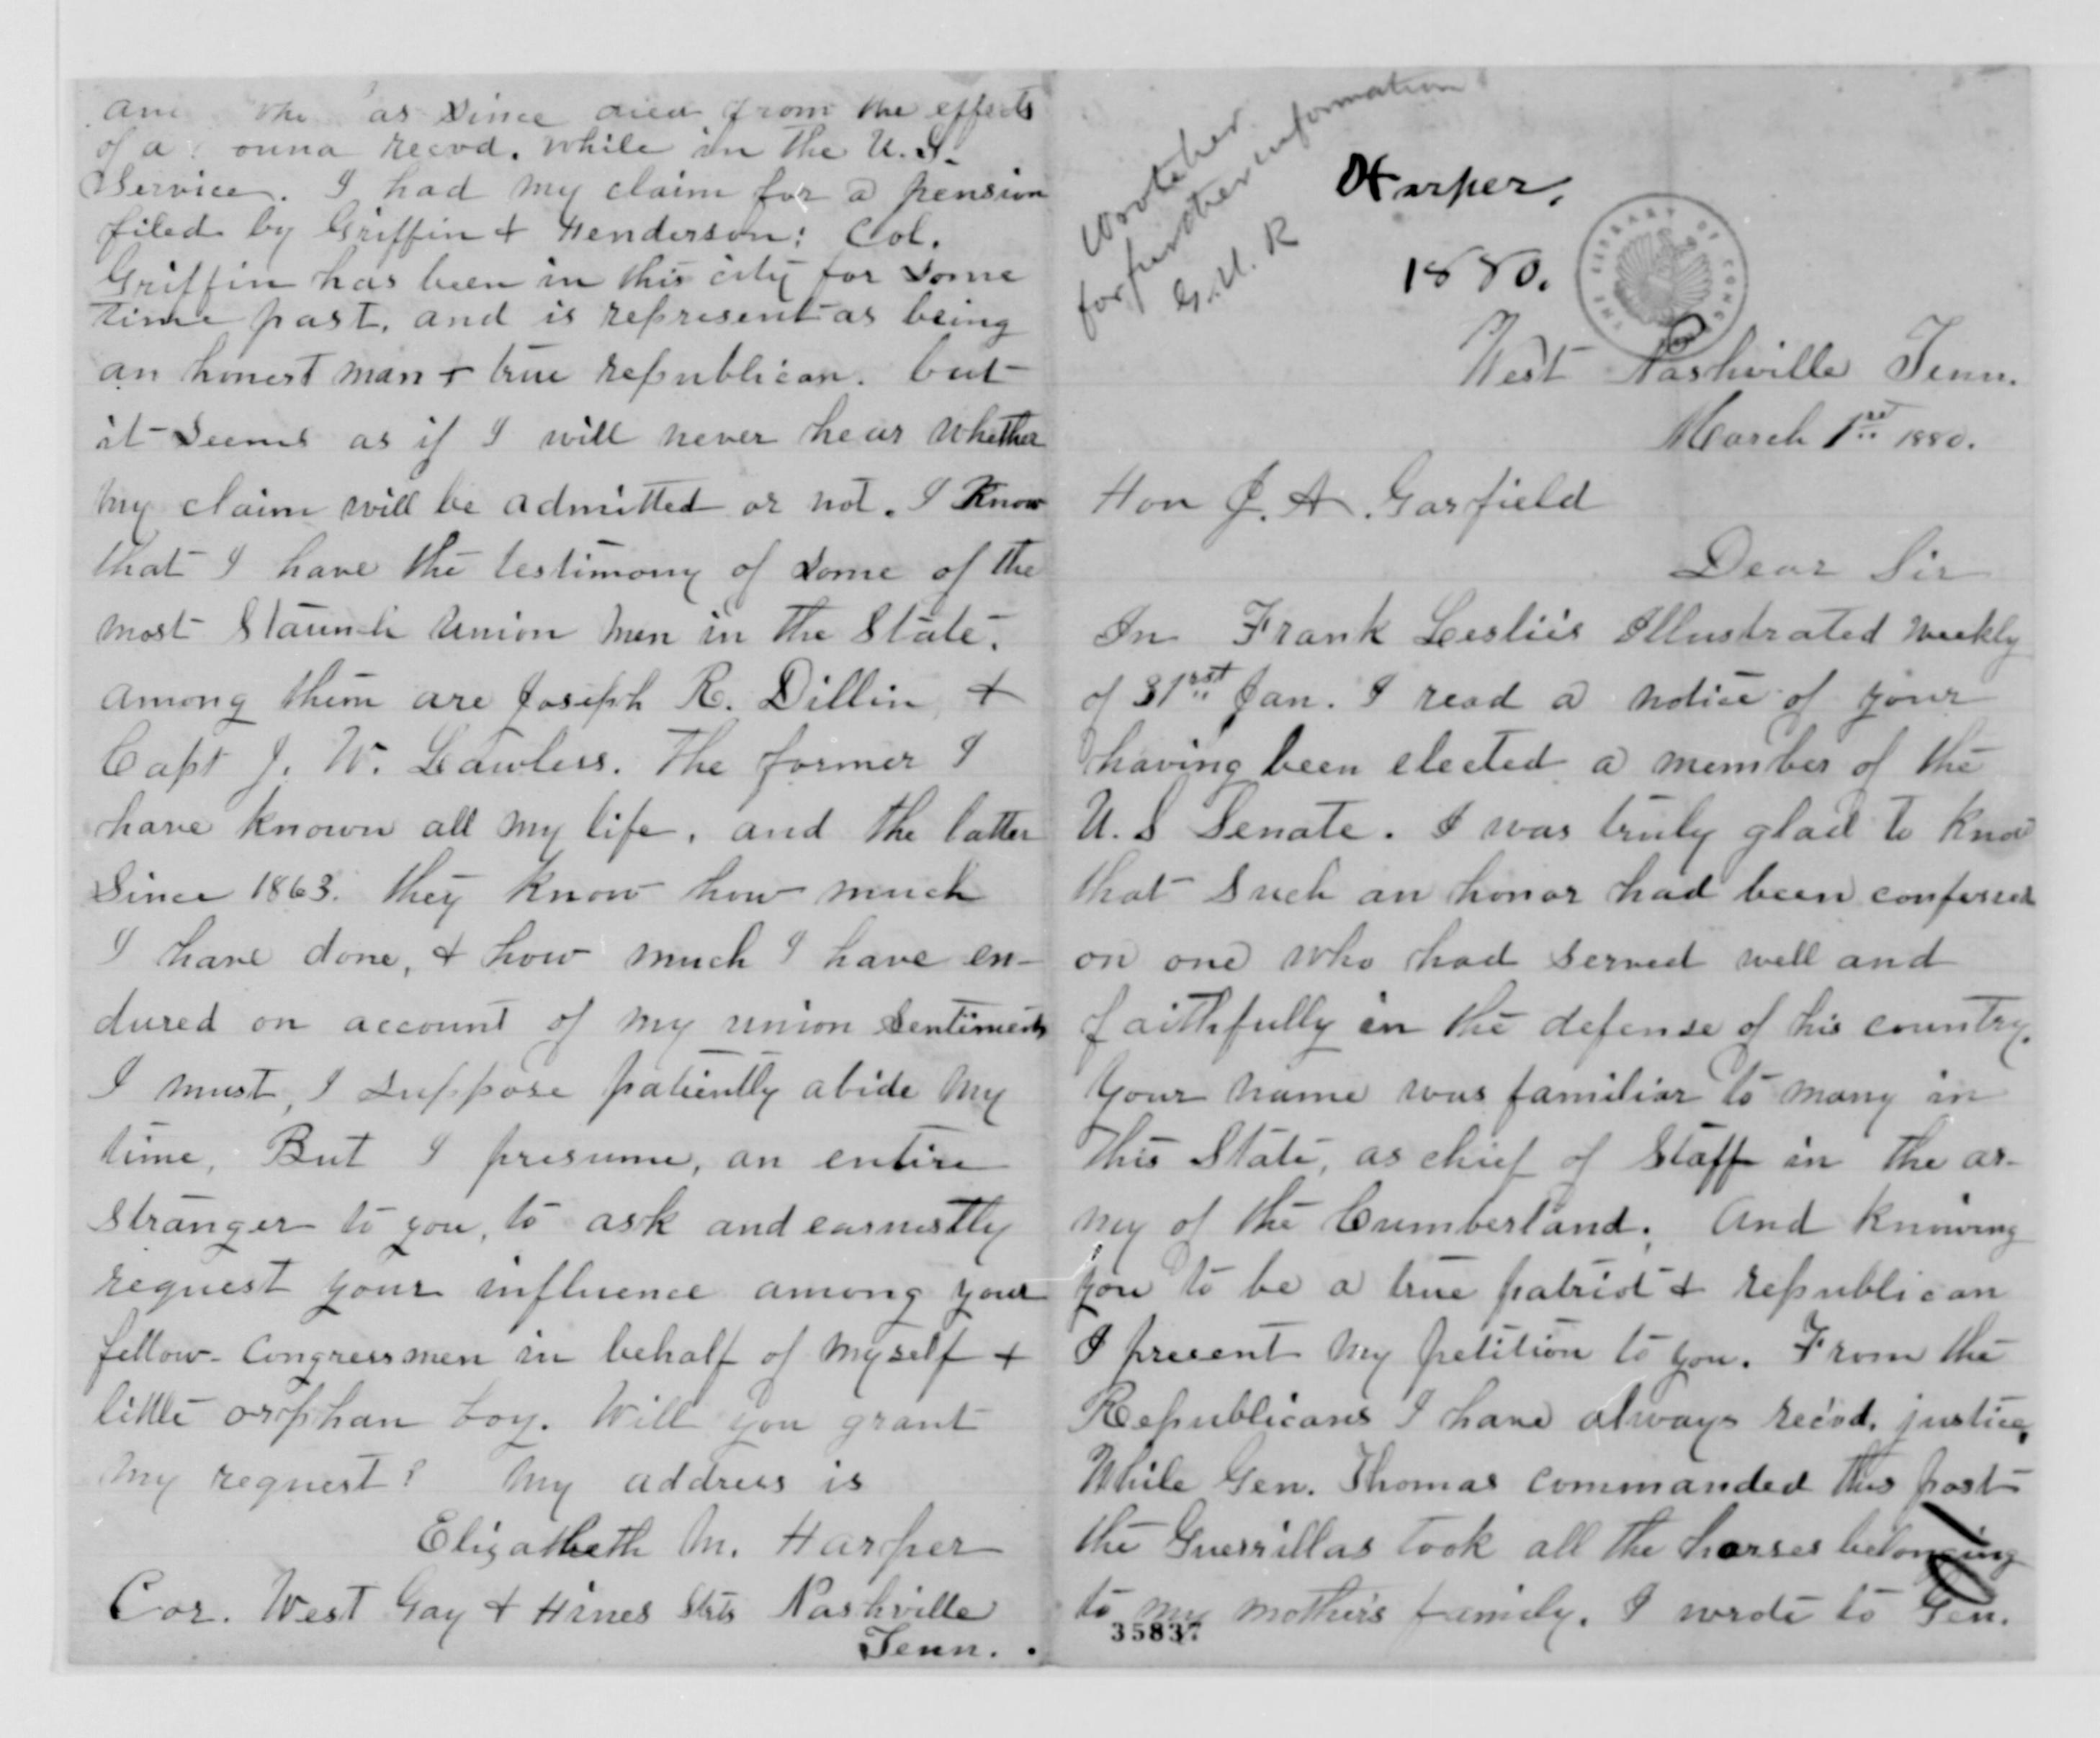 Wrote her
for further information
G.U.R
Harper,
1880.
THE LIBRARY OF CONG
West Nashville Tenn.
March 1st 1880.
Hon J. A. Garfield
Dear Sir
In Frank Leslie's Illustrated Weekly
of 31rst Jan. I read a notice of your
having been elected a member of the
U. S Senate. I was truly glad to know
that such an honor had been conferred
on one who had served well and
faithfully in the defense of his country.
Your name was familiar to many in
this State, as chief of Staff in the ar-
my of the Cumberland. And knowing
you to be a true patriot & republican
I precent my petition to you. From the
Republicans I have always recvd. justice,
While Gen. Thomas commanded this post
the Guerrillas took all the horses belonging
to my mother's family. I wrote to Gen.
35837
as since died from the effects
of a ound recvd. while in the U.S.
Service. I had my claim for a pension
filed by Griffin & Henderson: Col.
Griffin has been in this city for some
time past, and is represent as being
an honest man & true republican. but
it seems as if I will never hear whether
my claim will be admitted or not. I Know
that I have the testimony of some of the
most staunch Union men in the State.
among them are Joseph R. Dillin &
Capt J. W. Lawless. The former I
have known all my life, and the latter
since 1863. they know how much
I have done, & how much I have en-
dured on account of my union sentiments
I must, I suppose patiently abide my
time, But I presume, an entire
stranger to you, to ask and earnestly
request your influence among your
fellow-Congressmen in behalf of myself &
little orphan boy. Will you grant
my request? My address is
Elizabeth M. Harper
Cor. West Gay & Hines Strts Nashville
Tenn.